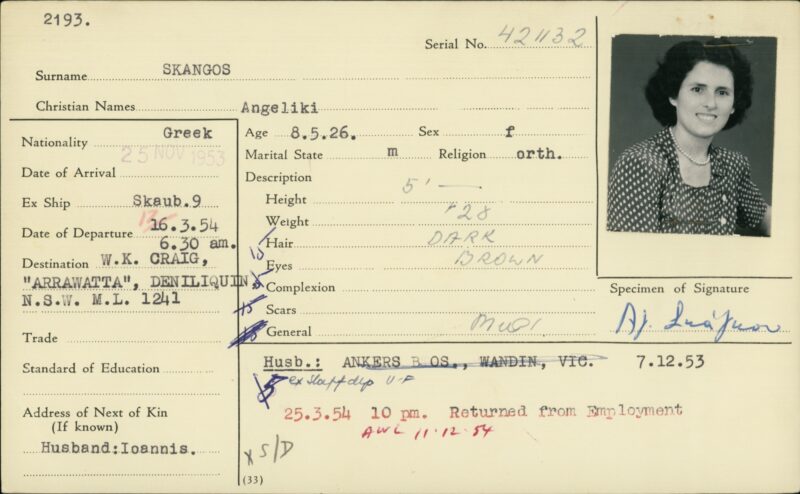 2193.
Serial No. 421132
Surname SKANGOS
Christian Names Angeliki
Nationality Greek
25 NOV 1953
Date of Arrival
Ex Ship Skaub.9
Date of Departure 16.3.54
6.30 am.
Destination W.K. CRAIG,
"ARRAWATTA", DENILIQUIN
N.S.W. M.L. 1241
Trade
Standard of Education
Address of Next of Kin
(If known)
Husband:Ioannis.
Age 8.5.26. Sex f
Marital State m Religion orth.
Description
Height 5' —
Weight 128
Hair DARK
Eyes BROWN
Complexion
Scars
General
Specimen of Signature
Husb.: ANKERS B OS., WANDIN, VIC. 7.12.53
25.3.54 10 pm. Returned from Employment
AWL 11.12.54
x S/D
(33)